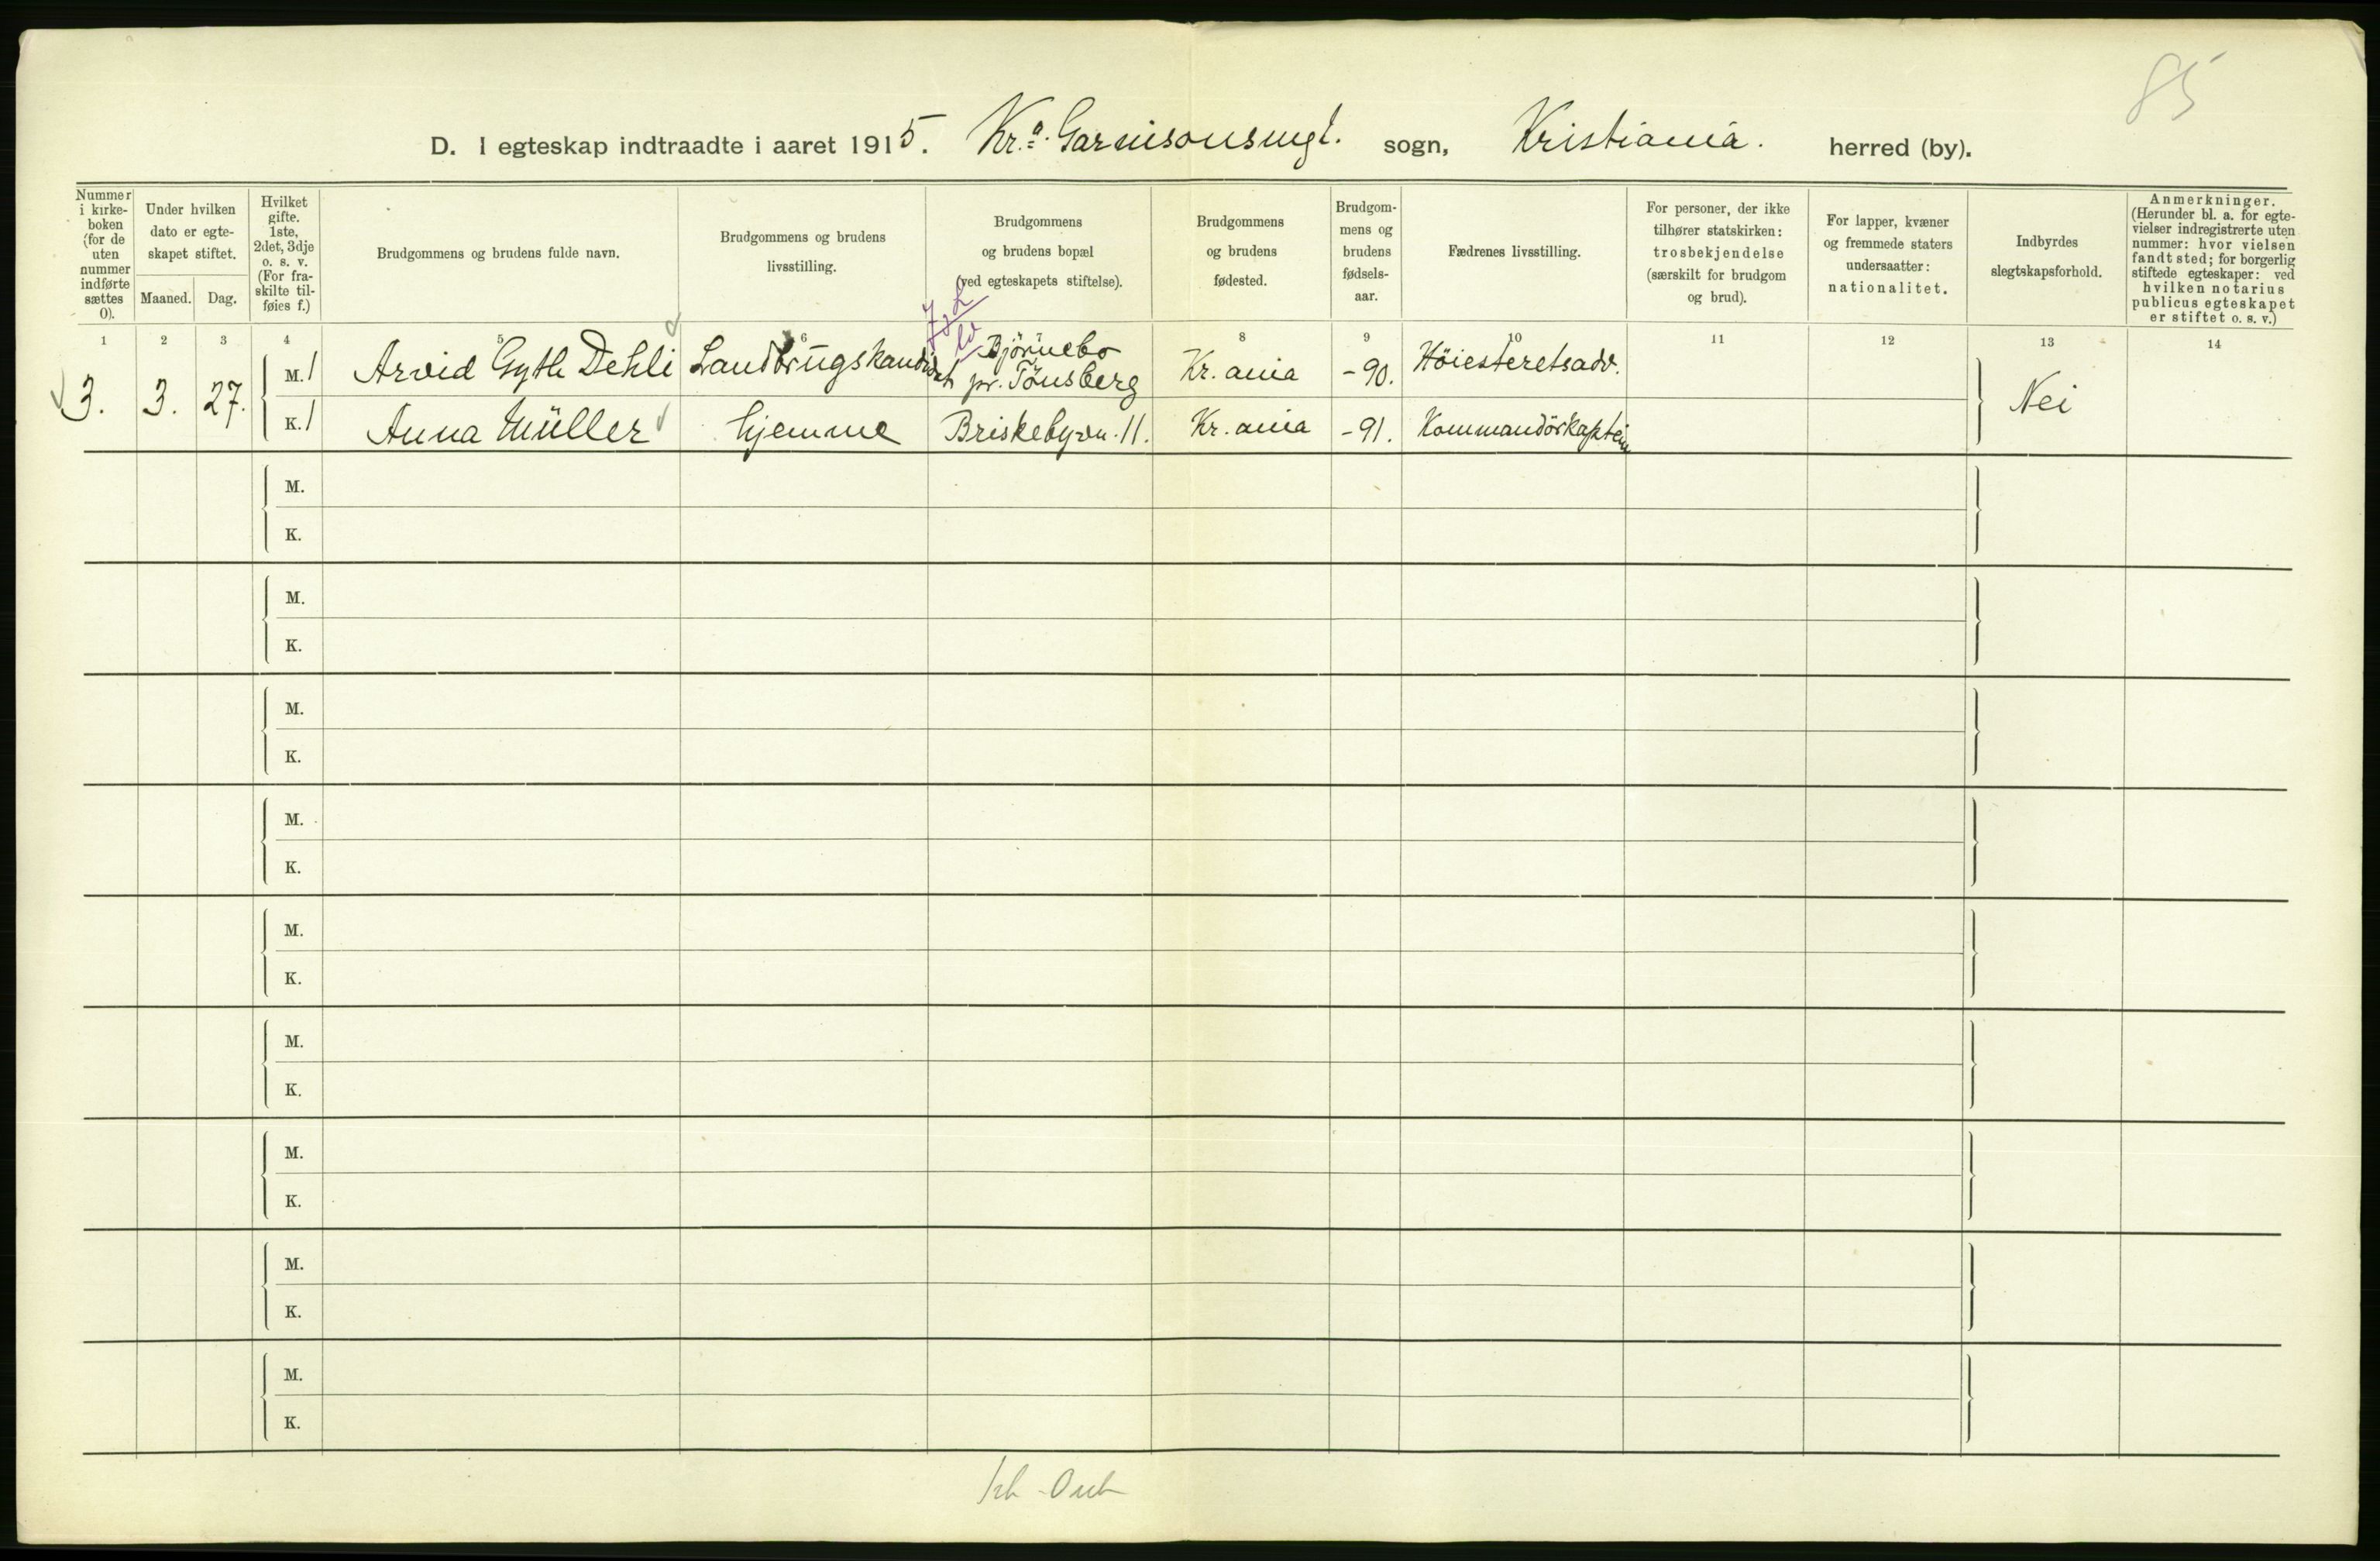 85
D. I egteskap indtraadte i aaret 1915. Kr.a Garnisonsmgl. sogn, Kristiania. herred (by).
Nummer i kirke-boken (for de uten nummer indførte sættes 0).
Under hvilken dato er egte-skapet stiftet.
Maaned. Dag.
Hvilket gifte. 1ste, 2det, 3dje o. s. v. (For fra-skilte til-føies f.)
Brudgommens og brudens fulde navn.
Brudgommens og brudens livsstilling.
Brudgommens og brudens bopæl (ved egteskapets stiftelse).
Brudgommens og brudens fødested.
Brudgom-mens og brudens fødsels-aar.
Fædrenes livsstilling.
For personer, der ikke tilhører statskirken: trosbekjendelse (særskilt for brudgom og brud).
For lapper, kvæner og fremmede staters undersaatter: nationalitet.
Indbyrdes slegtskapsforhold.
Anmerkninger. (Herunder bl. a. for egte-vielser indregistrerte uten nummer: hvor vielsen fandt sted; for borgerlig stiftede egteskaper: ved hvilken notarius publicus egteskapet er stiftet o. s. v.)
1 2 3 4 5 6 7 8 9 10 11 12 13 14
3. 3. 27. M. 1 Arvid Gyth Dehli Landbrugskandidat Björnebo pr. Tönsberg Kr.ania -90. Höiesteretsadv. Nei
K. 1 Anna Müller hjemme Briskebyvn. 11. Kr.ania -91. Kommandörkaptein
M.
K.
M.
K.
M.
K.
M.
K.
M.
K.
M.
K.
M.
K.
M.
K.
M.
K.